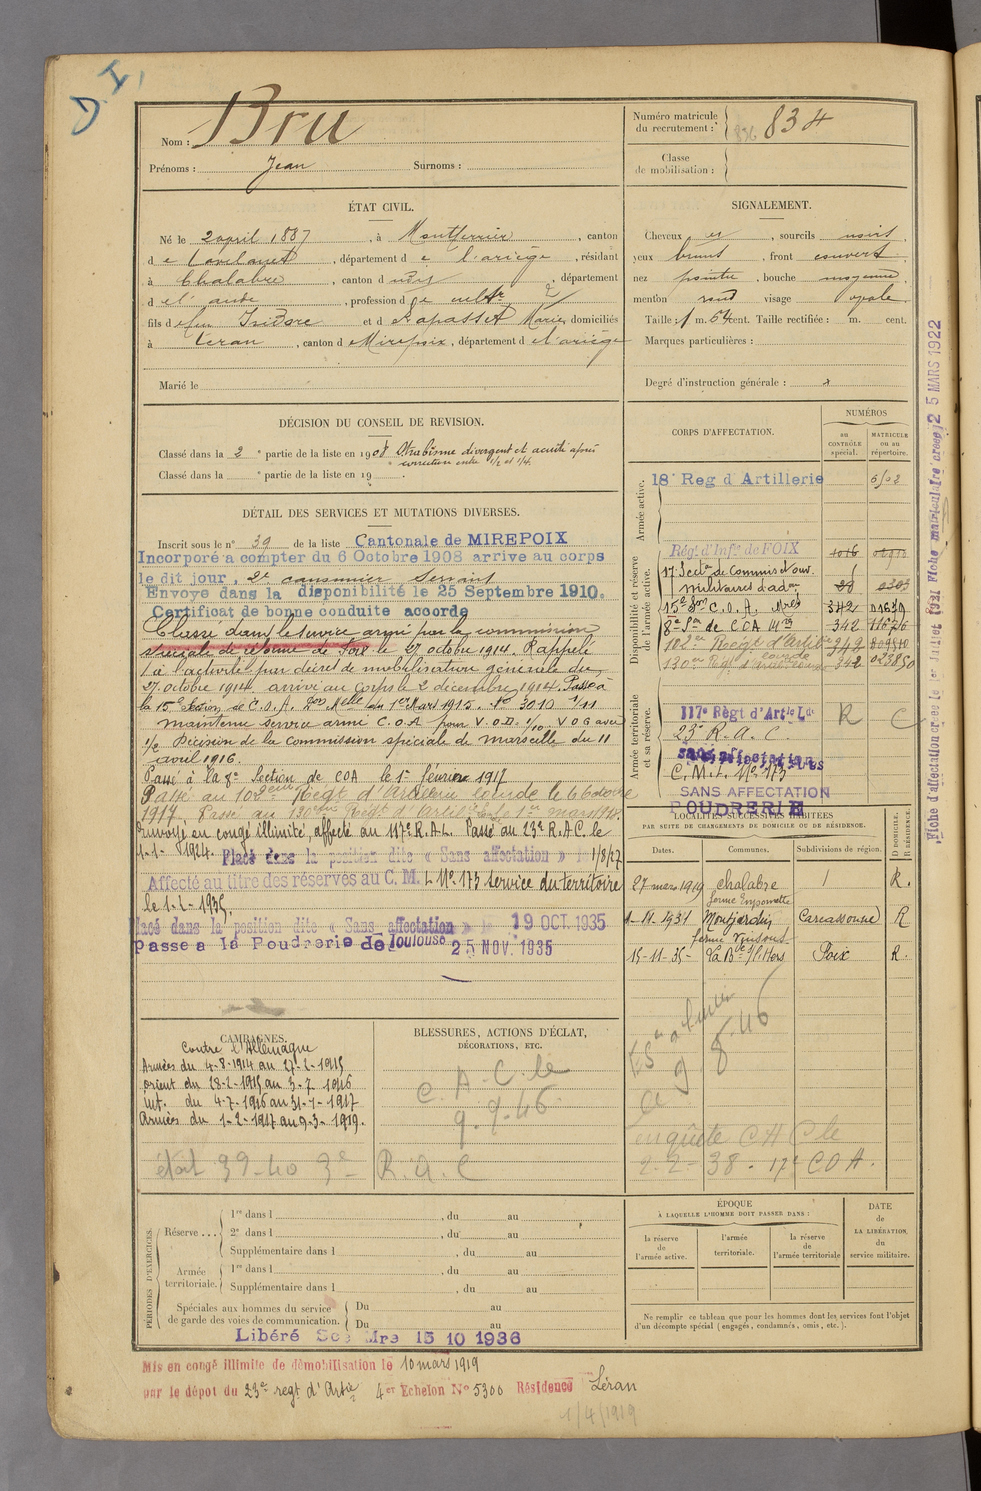 D I,
Nom : Bru
Prénoms : Jean Surnoms :
Numéro matricule
du recrutement : 834
Classe
de mobilisation :
ÉTAT CIVIL.
Né le 2 avril 1887, à Montferrier, canton
de Lavelanet, département de l'ariège, résidant
à Chalabre, canton d , département
de l'aude, profession de cultr
fils de feu Isidore et de Rapasset Marie, domiciliés
à Léran, canton de Mirepoix, département de l'ariège
Marié le
SIGNALEMENT.
Cheveux et, sourcils noirs,
yeux bruns, front couvert,
nez pointu, bouche moyenne,
menton rond visage ovale.
Taille : 1 m. 54 cent. Taille rectifiée : m. cent.
Marques particulières :
Degré d'instruction générale :
DÉCISION DU CONSEIL DE REVISION.
Classé dans la 2e partie de la liste en 1908 Strabisme divergent et acuité après
correction entre 1/2 et 1/4.
Classé dans la e partie de la liste en 19 .
DÉTAIL DES SERVICES ET MUTATIONS DIVERSES.
Inscrit sous le n° 39 de la liste Cantonale de MIREPOIX
Incorporé a compter du 6 Octobre 1908 arrive au corps
le dit jour, 2e canonnier Servant
Envoye dans la disponibilité le 25 Septembre 1910.
Certificat de bonne conduite accorde
Classé dans le service armé par la commission
spéciale de réforme de Foix le 27 octobre 1914. Rappelé
à l'activité par décret de mobilisation générale du
27 octobre 1914. arrivé au corps le 2 décembre 1914. Passé à
la 15e Section de C.O.A. Don Melle du 1er Mars 1915. No 3010 1/11
maintenu service armé C.O.A pour V.O.D. 1/10 V O G avec
1/2 Décision de la commission spéciale de marseille du 11
avril 1916.
Passé à la 8e Section de COA le 1er février 1917
Passé au 102eme Régt d'Artillerie lourde le 6 octobre
1917. Passé au 130eme Régt d'Artie Lourde le 1er mars 1918.
Envoyé en congé illimité, affecté au 117e R.A.L. Passé au 23e R.A.C. le
1-1-1924. Placé dans la position dite « Sans affectation » le 1/8/27
Affecté au titre des réserves au C. M. I. No 173 service du territoire
le 1-2-1935.
Placé dans la position dite « Sans affectation » le 19 OCT. 1935
passe a la Poudrerie de Toulouse 25 NOV. 1935
CORPS D'AFFECTATION.
NUMÉROS
au
CONTRÔLE
spécial.
MATRICULE
ou au
répertoire.
Armée active.
18e Reg d'Artillerie
Disponibilité et réserve
de l'armée active.
Régt d'Infie de FOIX 1016
17e Secton de Commis et ouv.
militaires d'adon
15e Son C.O.A. Mres 342 01639
8e Son de COA Mres 342 11676
102e Régt d'Artie 342
130eme Régt d'Artie lourde 342 02380
Armée territoriale
et sa réserve.
117e Régt d'Artie Lde R C
23e R.A.C.
sans affectation
C.M.I. No 173
SANS AFFECTATION
POUDRERIE
LOCALITÉS SUCCESSIVES HABITÉES
PAR SUITE DE CHANGEMENTS DE DOMICILE OU DE RÉSIDENCE.
Dates. Communes. Subdivisions de région. D DOMICILE. R RÉSIDENCE.
27 mars 1919 Chalabre R.
1-11-1931 Montjardin Carcassonne R
15-11-35- La Bde/l'Hers Foix R.
9 8 46
enquete CHC le
2-2-38 - 17e COA.
CAMPAGNES.
Contre l'Allemagne
Armées du 4-8-1914 au 27-2-1915
Orient du 28-2-1915 au 3-7 1916
Int. du 4-7-1916 au 31-1-1917
Armées du 1-2-1917 au 9-3-1919.
état 39-40 3e R.A.C
BLESSURES, ACTIONS D'ÉCLAT,
DÉCORATIONS, ETC.
C.A.C. le
9.9.46
PÉRIODES D'EXERCICES.
Réserve ....
1re dans l , du au
2e dans l , du au
Supplémentaire dans l , du au
Armée
territoriale.
1re dans l , du au
Supplémentaire dans l , du au
Spéciales aux hommes du service
de garde des voies de communication.
Du au
Du au
Libéré Sce Mre 15 10 1936
ÉPOQUE
À LAQUELLE L'HOMME DOIT PASSER DANS :
la réserve
de
l'armée active.
l'armée
territoriale.
la réserve
de
l'armée territoriale
DATE
de
LA LIBÉRATION
du
service militaire.
Ne remplir ce tableau que pour les hommes dont les services font l'objet
d'un décompte spécial (engagés, condamnés, omis, etc.).
Mis en congé illimite de démobilisation le 10 mars 1919
par le dépot du 23e regt d'Artie 4er Echelon No 5300 Résidence Léran
1/4/1919
Fiche d'affectation créée le 1er Juillet 1931 Fiche matriculaire creee 25 MARS 1922